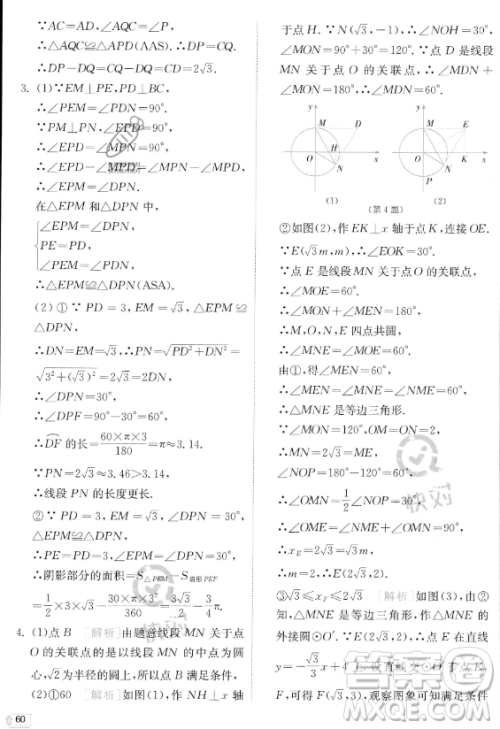 ∵AC=AD，
∴△AQC≌△APD(AAS).
∴DP-DQ=CD=2√3.
3. (1)∵EM⊥PE，PD⊥BC，
∴∠PEM=∠PDN=90°.
∵PM⊥PN，∠EPD=90°，
∴∠EPD=∠MPN=90°.
∴∠EPD-∠MPD=∠MPN-∠MPD.
∴∠EPM=∠DPN.
在△EPM和△DPN中，
∠EPM=∠DPN，
PE=PD，
∠PEM=∠PDN，
∴△EPM≌△DPN(ASA).
(2)①∵PD=3，EM=√3，△EPM≌△DPN，
∴DN=EM=√3，PN=√(PD²+DN²)=
√(3²+(√3)²)=2√3，∠EPM=30°.
∴∠DPF=90°-30°=60°.
∴DF的长=60×π×3/180=π≈3.14.
∵PN=2√3≈3.46>3.14，
∴线段PN的长度更长.
②∵PD=3，EM=√3，∠DPN=30°，
∴PE=PD=3，∠EPM=∠DPN=30°.
∴阴影部分的面积=S△PEM-S扇形PEF
=1/2×3×√3-30×π×3²/360=3√3/2-3π/4.
4. (1)点B [解析] 由题意线段MN关于点
O的关联点的是以线段MN的中点为圆心，
√2为半径的圆上，所以点B满足条件.
(2)①60 [解析] 如图(1)，作NH⊥x轴
60
于点H.∵N(√3，-1)，∴∠NOH=30°，
∠MON=90°+30°=120°.∵点D是线段
MN关于点O的关联点，∴∠MDN+
∠MON=180°，∴∠MDN=60°.
y M D O N x
y M E O K x N
(1) (2)
(第4题)
②如图(2)，作EK⊥x轴于点K，连接OE.
∵E(√3m，m)，∴∠EOK=30°.
∵点E是线段MN关于点O的关联点，
∴∠MOE=60°，∴∠MEN=60°.
∵∠MEN+∠MON=180°，
∴M，O，N，E四点共圆，
∴∠MNE=∠MOE=60°.
由①，得∠MEN=60°，
∴∠MEN=∠MNE=60°，
∴△MNE是等边三角形.
∵OM=ON=2，∠MON=120°，
∴MN=2√3=ME，
∵∠NOP=30°，
∴∠OMN=1/2∠NOP=30°，
∴∠OME=∠OMN+∠EMN=90°，
∴xE=ME=2√3，
∴E(2√3，2).
③√3≤xF≤2√3 [解析] 作△MNE的
外接圆⊙O′.∵∠MOE=60°，E在直线
y=-√3/3x+4上，该直线交⊙O′于E(2√3，2)，
可得F(√3，3)，观察图象可知满足条件